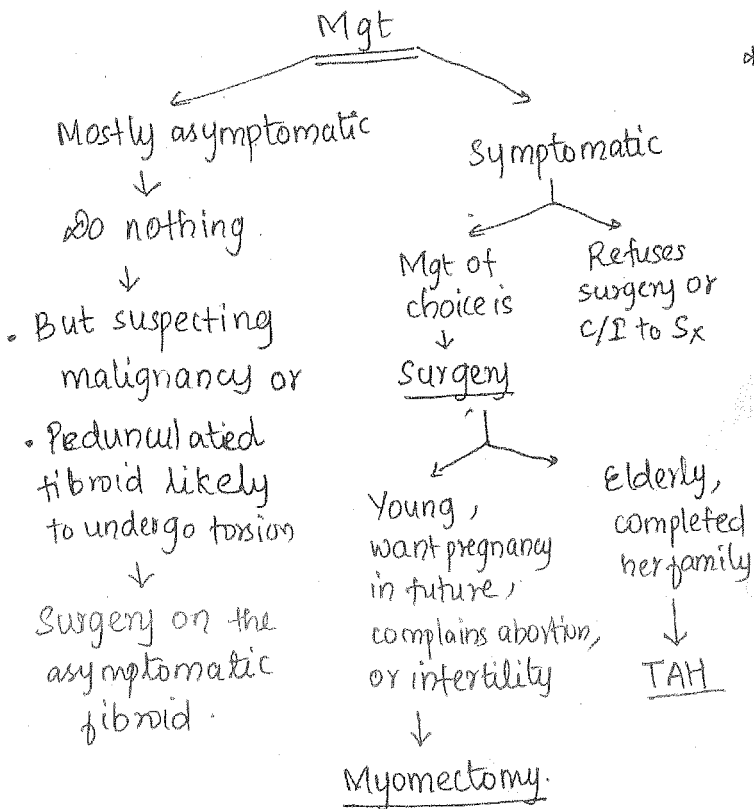 Mgt
Mostly asymptomatic
Do nothing.
• But suspecting
malignancy or
• Pedunculated
fibroid likely
to undergo torsion
Surgery on the
asymptomatic
fibroid.
Symptomatic
Mgt of
choice is
Surgery
Young,
want pregnancy
in future,
complains abortion,
or infertility
Myomectomy.
Elderly,
completed
her family
TAH
Refuses
surgery or
C/I to Sx